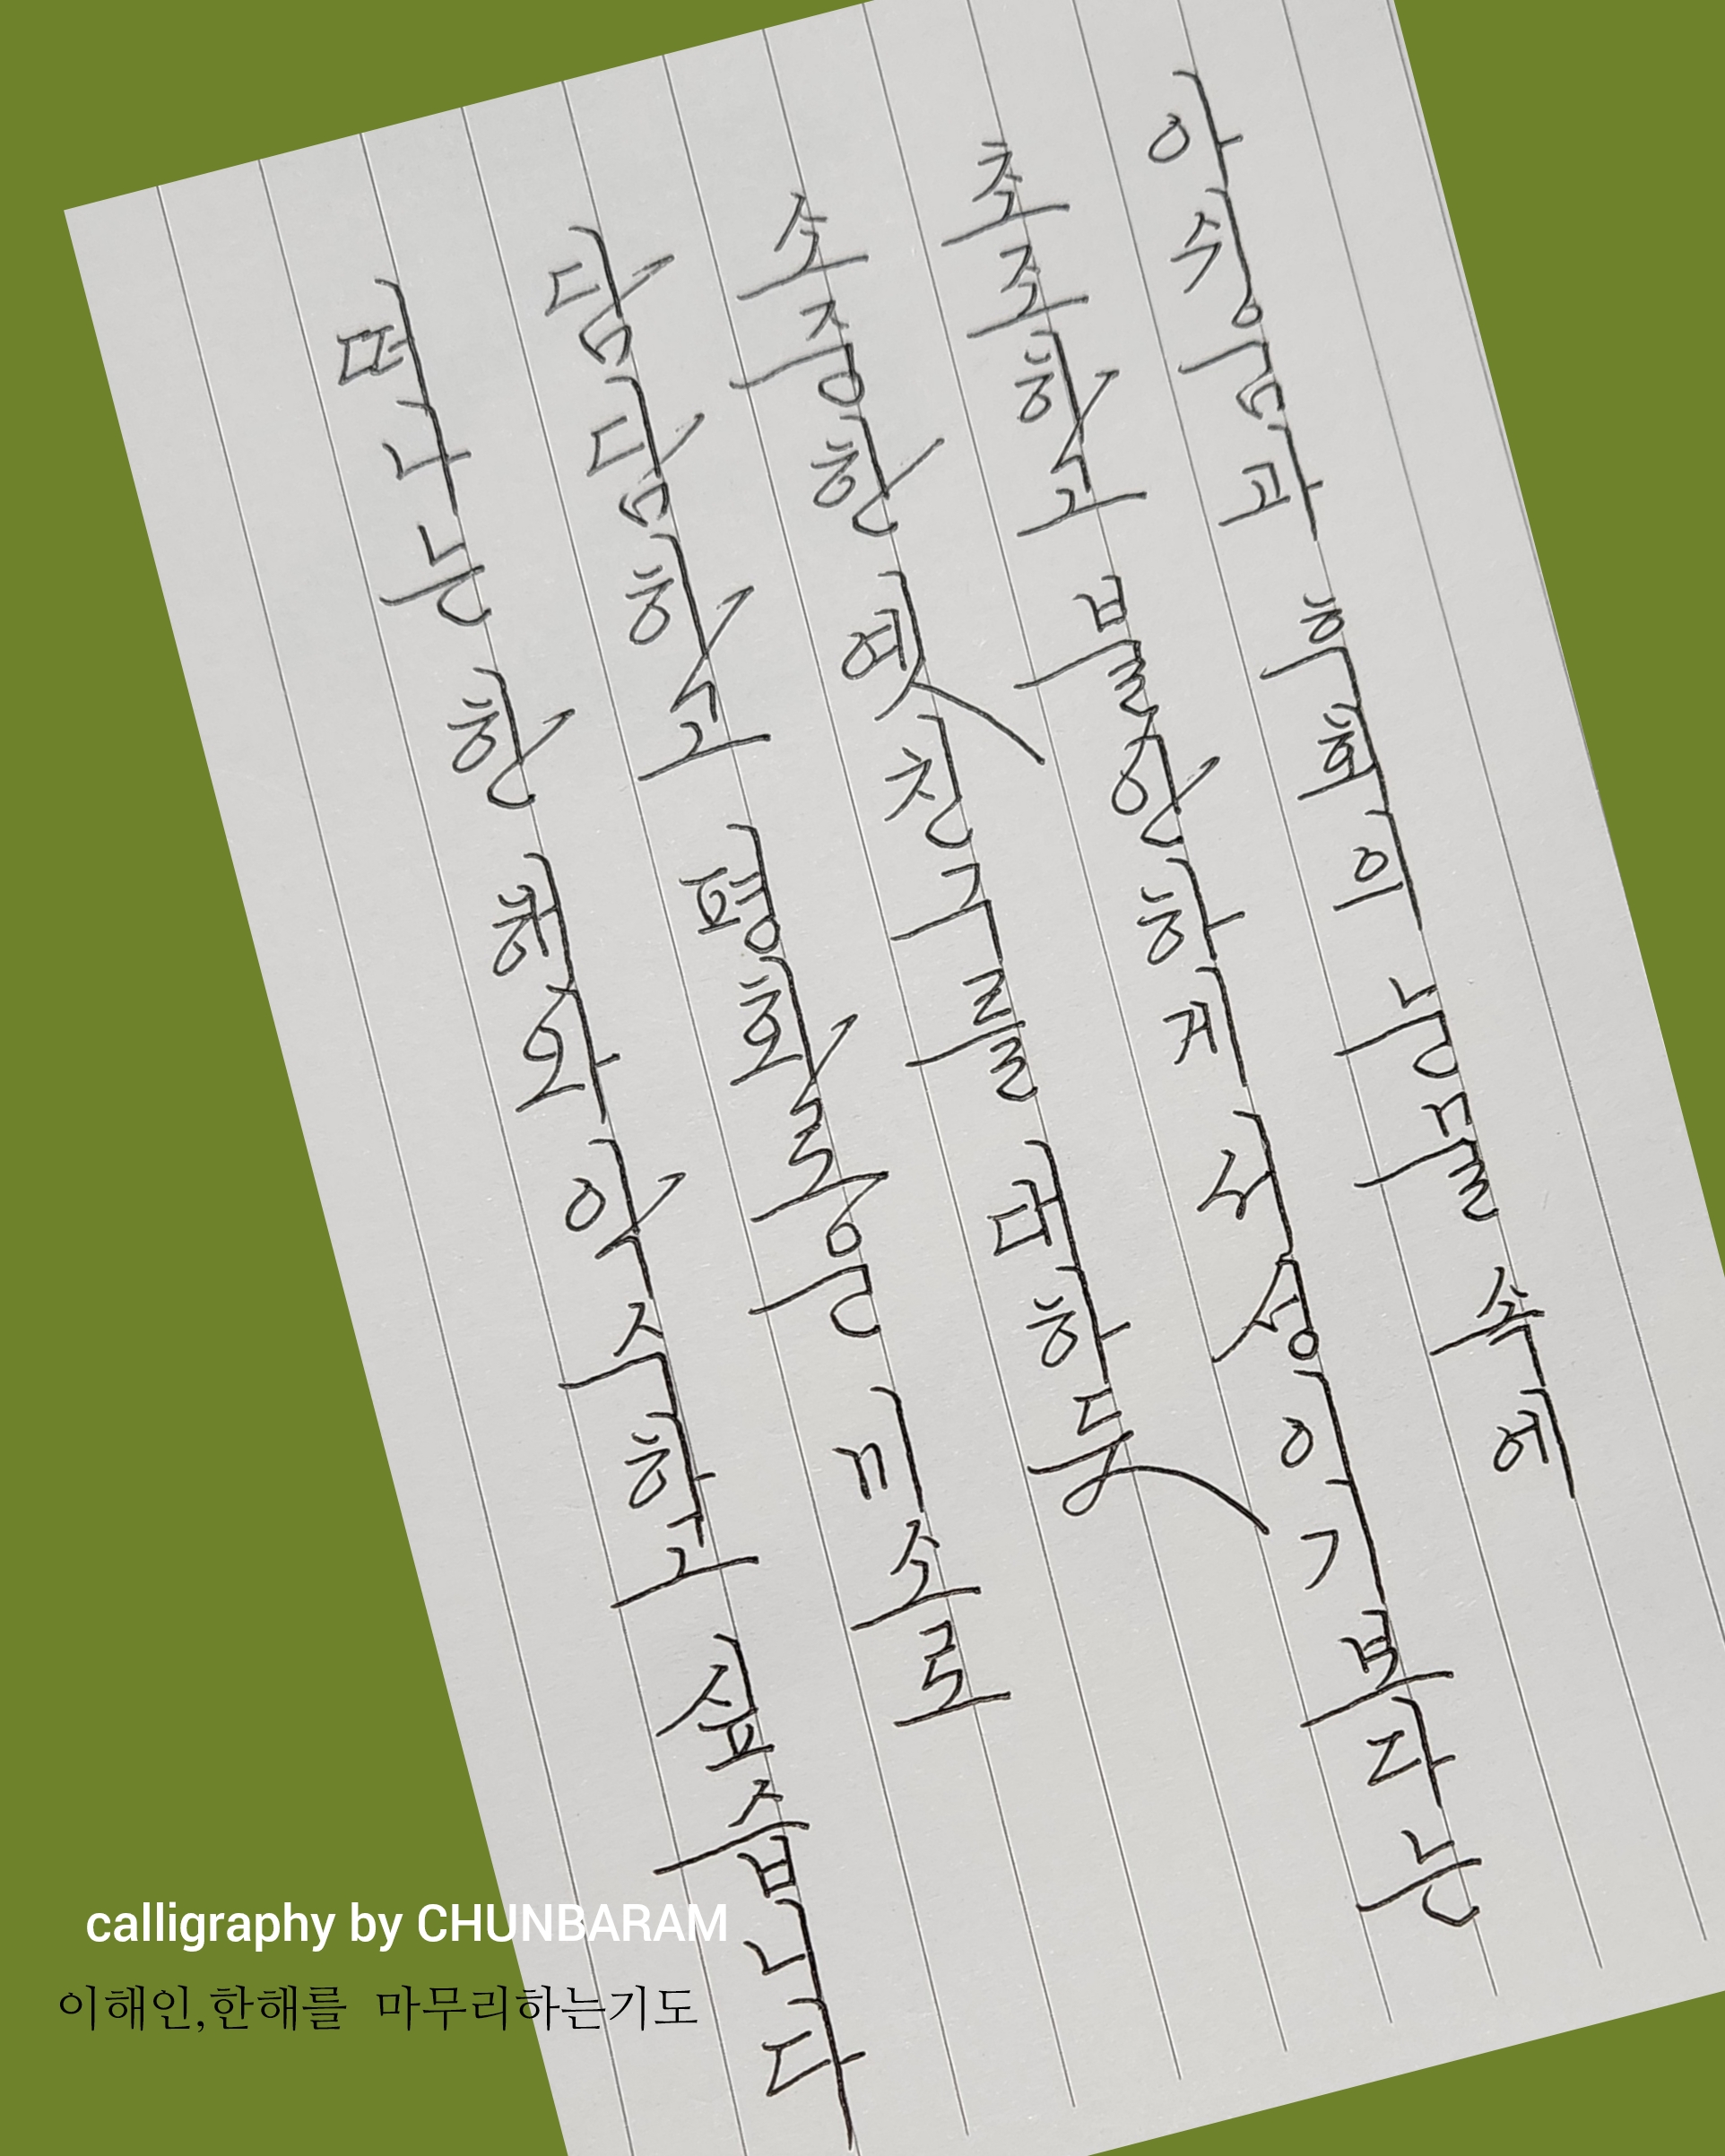 아쉬움과 후회의 눈물 속에
초조하고 불안하게 서성이기보다는
소중한 옛친구를 대하듯
담담하고 평화로운 미소로
떠나는 한 해와 악수하고 싶습니다
calligraphy by CHUNBARAM
이해인,한해를 마무리하는기도